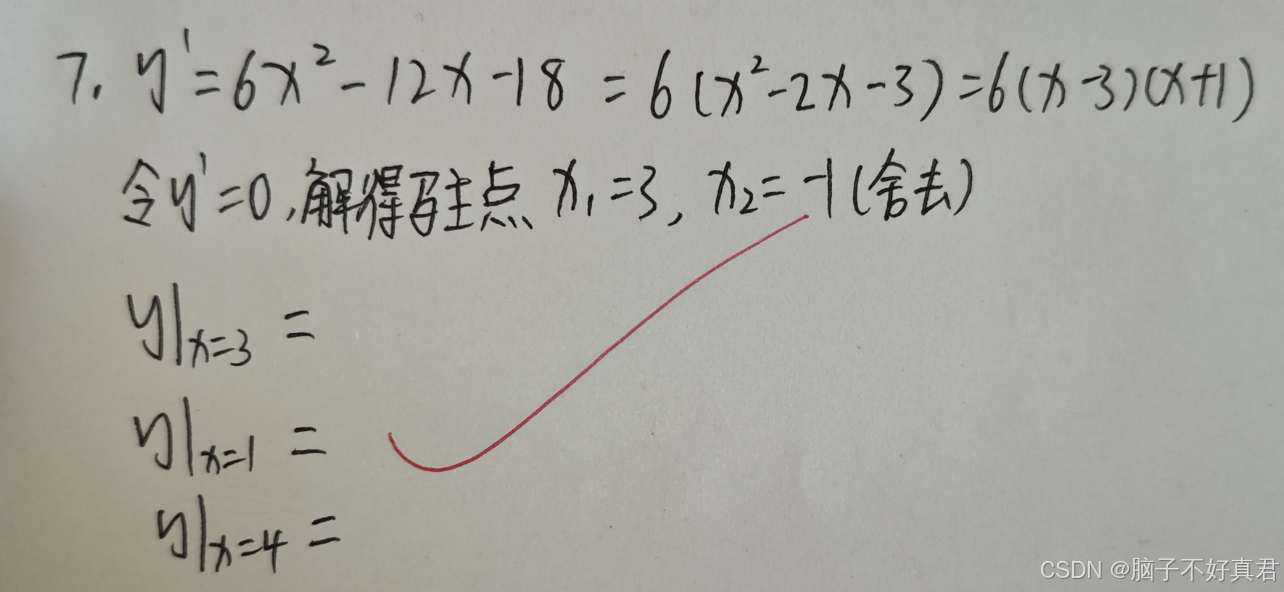 7. y'=6x²-12x-18 = 6(x²-2x-3)=6(x-3)(x+1)
令y'=0,解得驻点 x₁=3, x₂=-1(舍去)
y|ₓ₌₃ =
y|ₓ₌₁ =
y|ₓ₌₄ =
CSDN @脑子不好真君